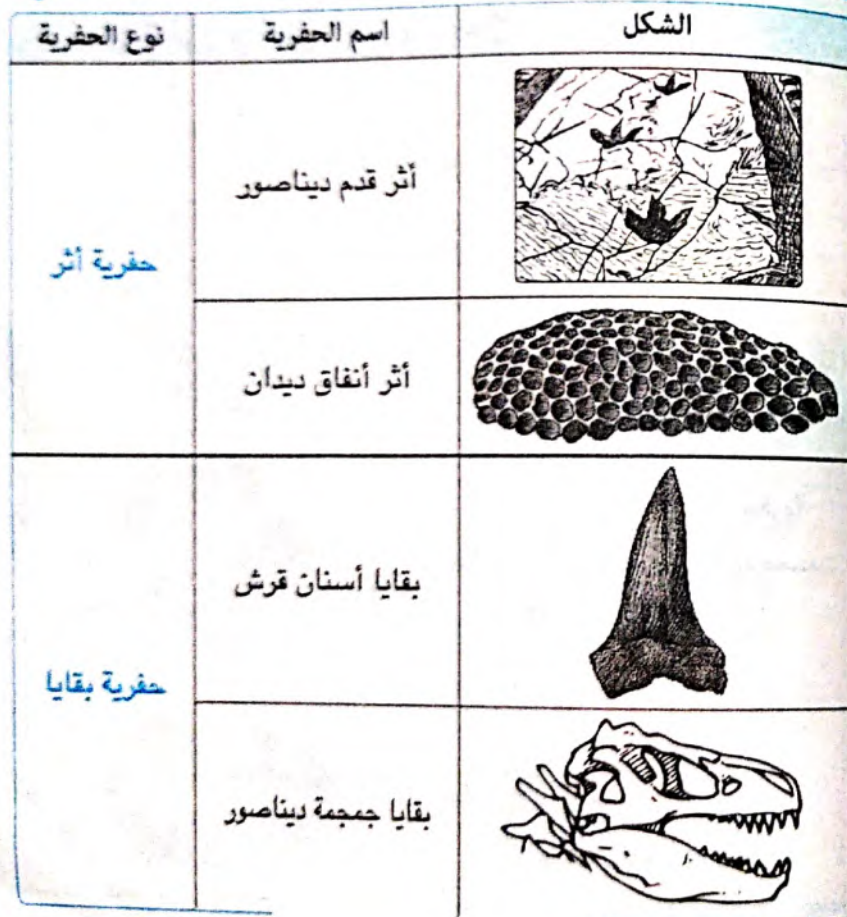 الشكل
اسم الحفرية
نوع الحفرية
أثر قدم ديناصور
حفرية أثر
أثر أنفاق ديدان
بقايا أسنان قرش
حفرية بقايا
بقايا جمجمة ديناصور